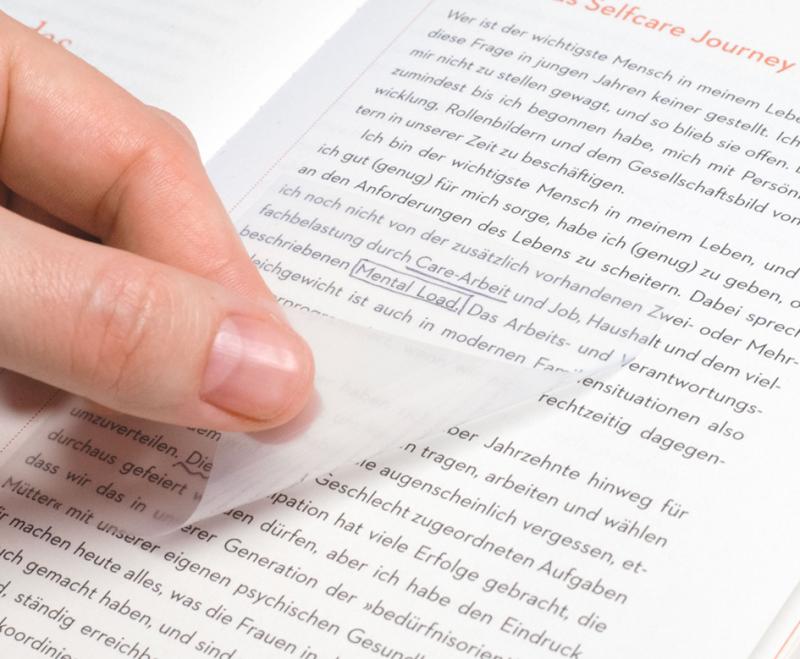 Selfcare Journey
Wer ist der wichtigste Mensch in meinem
diese Frage in jungen Jahren keiner gestellt. Ich
mir nicht zu stellen gewagt, und so blieb sie offen.
zumindest bis ich begonnen habe, mich mit
wicklung, Rollenbildern und dem Gesellschaftsbild von
tern in unserer Zeit zu beschäftigen.
Ich bin der wichtigste Mensch in meinem Leben, und
ich gut (genug) für mich sorge, habe ich (genug) zu geben,
an den Anforderungen des Lebens zu scheitern. Dabei
ich noch nicht von der zusätzlich vorhandenen Zwei- oder Mehr-
fachbelastung durch Care-Arbeit und Job, Haushalt und dem viel-
beschriebenen Mental Load. Das Arbeits- und Verantwortungs-
leichgewicht ist auch in modernen ensituationen also
rechtzeitig dagegen-
ber Jahrzehnte hinweg für
umzuverteilen. Die n tragen, arbeiten und wählen
durchaus gefeiert augenscheinlich vergessen, et-
dass wir das in Geschlecht zugeordneten Aufgaben
Mütter« mit unserer ipation hat viele Erfolge gebracht, die
machen heute den dürfen, aber ich habe den Eindruck
gemacht haben, Generation der »bedürfnisorien
ständig eigenen psychischen
alles, was die Frauen in
und sind